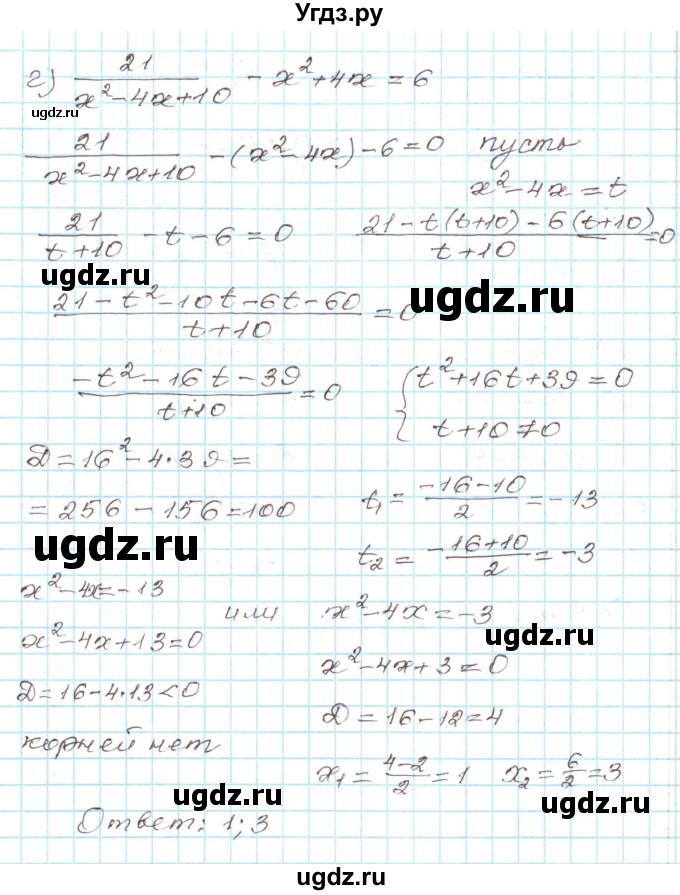 Угдз.ру
г) 21/(x²-4x+10) - x²+4x = 6
ugdz.ru
21/(x²-4x+10) - (x²-4x) - 6 = 0 пусть
x²-4x = t
21/(t+10) - t - 6 = 0 (21 - t(t+10) - 6(t+10))/(t+10) = 0
ugdz.ru ugdz.ru
(21 - t² - 10t - 6t - 60)/(t+10) = 0
(-t² - 16t - 39)/(t+10) = 0 { t²+16t+39 = 0
t+10 ≠ 0
D = 16² - 4·39 =
= 256 - 156 = 100 t₁ = (-16-10)/2 = -13
ugdz.ru
t₂ = (-16+10)/2 = -3
x²-4x = -13 или x²-4x = -3
ugdz.ru
x²-4x+13 = 0 x²-4x+3 = 0
D = 16-4·13 < 0 D = 16-12 = 4
корней нет x₁ = (4-2)/2 = 1 x₂ = 6/2 = 3
ugdz.ru ugdz.ru
Ответ: 1; 3
ugdz.ru